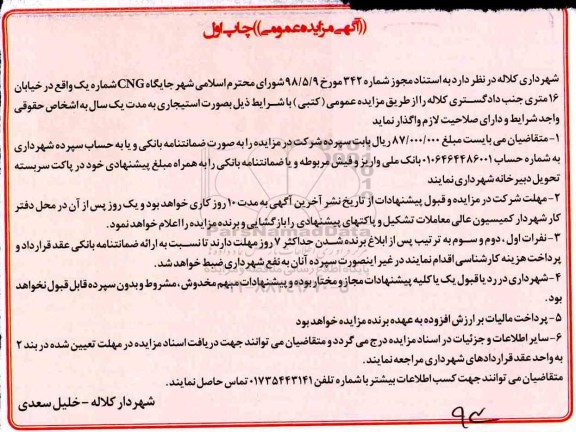 ((آگهی مزایده عمومی)) چاپ اول
شهرداری کلاله در نظر دارد به استناد مجوز شماره ۳۴۲ مورخ ۹۸/۵/۹ شورای محترم اسلامی شهر جایگاه CNG شماره یک واقع در خیابان
۱۶ متری جنب دادگستری کلاله را از طریق مزایده عمومی (کتبی) با شرایط ذیل بصورت استیجاری به مدت یک سال به اشخاص حقوقی
واجد شرایط و دارای صلاحیت لازم واگذار نماید
۱- متقاضیان می بایست مبلغ ۸۷/۰۰۰/۰۰۰ ریال بابت سپرده شرکت در مزایده را به صورت ضمانتنامه بانکی و یا به حساب سپرده شهرداری
به شماره حساب ۰۱۰۶۴۶۴۴۸۶۰۰۱ بانک ملی واریز و فیش مربوطه و یا ضمانتنامه بانکی را به همراه مبلغ پیشنهادی خود در پاکت سربسته
تحویل دبیرخانه شهرداری نمایند
۲- مهلت شرکت در مزایده و قبول پیشنهادات از تاریخ نشر آخرین آگهی به مدت ۱۰ روز کاری خواهد بود و یک روز پس از آن در محل دفتر
کار شهردار کمیسیون عالی معاملات تشکیل و پاکتهای پیشنهادی را بازگشایی و برنده مزایده را اعلام خواهد نمود.
۳- نفرات اول، دوم و سوم به ترتیب پس از ابلاغ برنده شدن حداکثر ۷ روز مهلت دارند تا نسبت به ارائه ضمانتنامه بانکی عقد قرارداد و
پرداخت هزینه کارشناسی اقدام نمایند در غیر اینصورت سپرده آنان به نفع شهرداری ضبط خواهد شد.
۴- شهرداری در رد یا قبول یک یا کلیه پیشنهادات مجاز و مختار بوده و پیشنهادات مبهم مخدوش، مشروط و بدون سپرده قابل قبول نخواهد
بود.
۵- پرداخت مالیات بر ارزش افزوده به عهده برنده مزایده خواهد بود
۶- سایر اطلاعات و جزئیات در اسناد مزایده درج می گردد و متقاضیان می توانند جهت دریافت اسناد مزایده در مهلت تعیین شده در بند ۲
به واحد عقد قراردادهای شهرداری مراجعه نمایند.
متقاضیان می توانند جهت کسب اطلاعات بیشتر با شماره تلفن ۰۱۷۳۵۴۴۳۱۴۱ تماس حاصل نمایند.
شهردار کلاله - خلیل سعدی